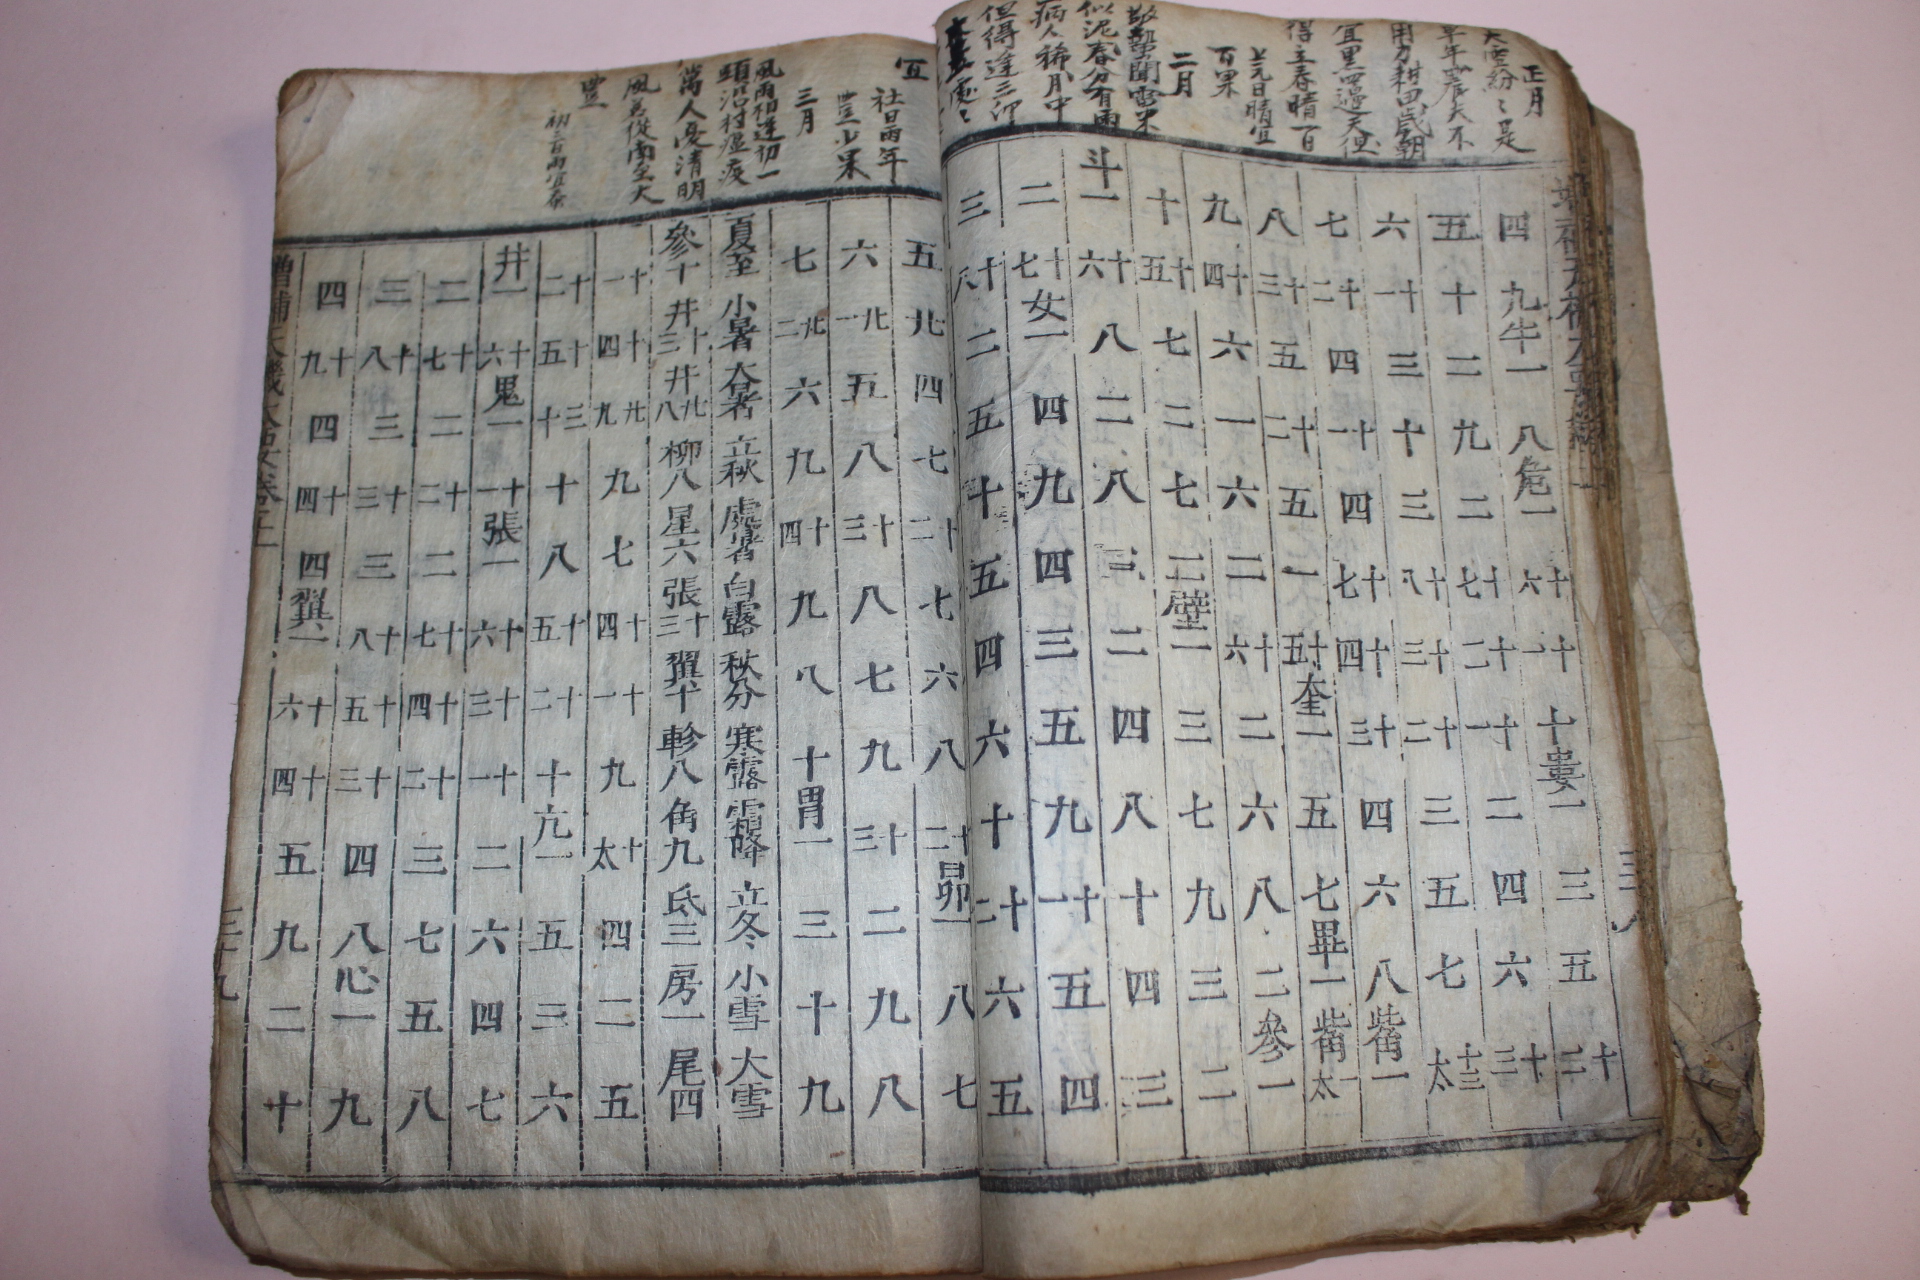 正月
大雪紛〻是
旱年農夫不
用力耕田歲朝
宜黑四邊天但
得立春晴一百
上元日晴宜
百果
二月
驚蟄聞雷米
似泥春分有雨
病人稀月中
但得逢三卯
四 九 牛一 八 危一 十六 十一 十 婁一 三 五 十二
五 十 二 九 二 十七 十二 十一 二 四 六 十三太
六 十一 三 十 三 十八 十三 十二 三 五 七 觜一
七 十二 四 十一 四 十七 十四 十三 四 六 八 觜一太
八 十三 五 十二 五 一 十五 奎一 五 七 畢一
九 十四 六 一 六 二 十六 二 六 八 二 參一
十 十五 七 二 七 二 壁一 三 七 九 三 二
斗一 十六 八 二 八 三 二 四 八 十 四 三
二 十七 女一 四 九 四 三 五 九 十一 五 四
三 十八 二 五 十 五 四 六 十 十二 六 五
宜
社日雨年
豐少果
三月
風雨相逢初一
頭沿村瘟疫
萬人憂清明
風若從南至大
豐
初三日雨宜蚕
五 廿 四 七 十二 七 六 八 十二 昴一 八 七
六 廿一 五 八 十三 八 七 九 十三 二 九 八
七 廿二 六 九 十四 九 八 十 胃一 三 十 九
夏至 小暑 大暑 立秋 處暑 白露 秋分 寒露 霜降 立冬 小雪 大雪
參十 井十三 井廿八 柳八 星六 張十三 翼十 軫八 角九 氐三 房一 尾四
十一 十四 廿九 九 七 十四 十一 九 十太 四 二 五
十二 十五 三十 十 八 十五 十二 十 亢一 五 三 六
井一 十六 鬼一 十一 張一 十六 十三 十一 二 六 四 七
二 十七 二 十二 二 十七 十四 十二 三 七 五 八
三 十八 三 十三 三 十八 十五 十三 四 八 心一 九
四 十九 四 十四 四 翼一 十六 十四 五 九 二 十
增補天機大要卷之上 三十九